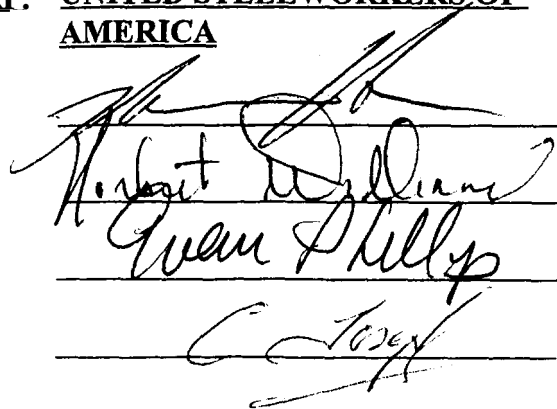 UNITED STEELWORKERS OF
AMERICA
Norbert Williams
Evan Phillip
C Joseph